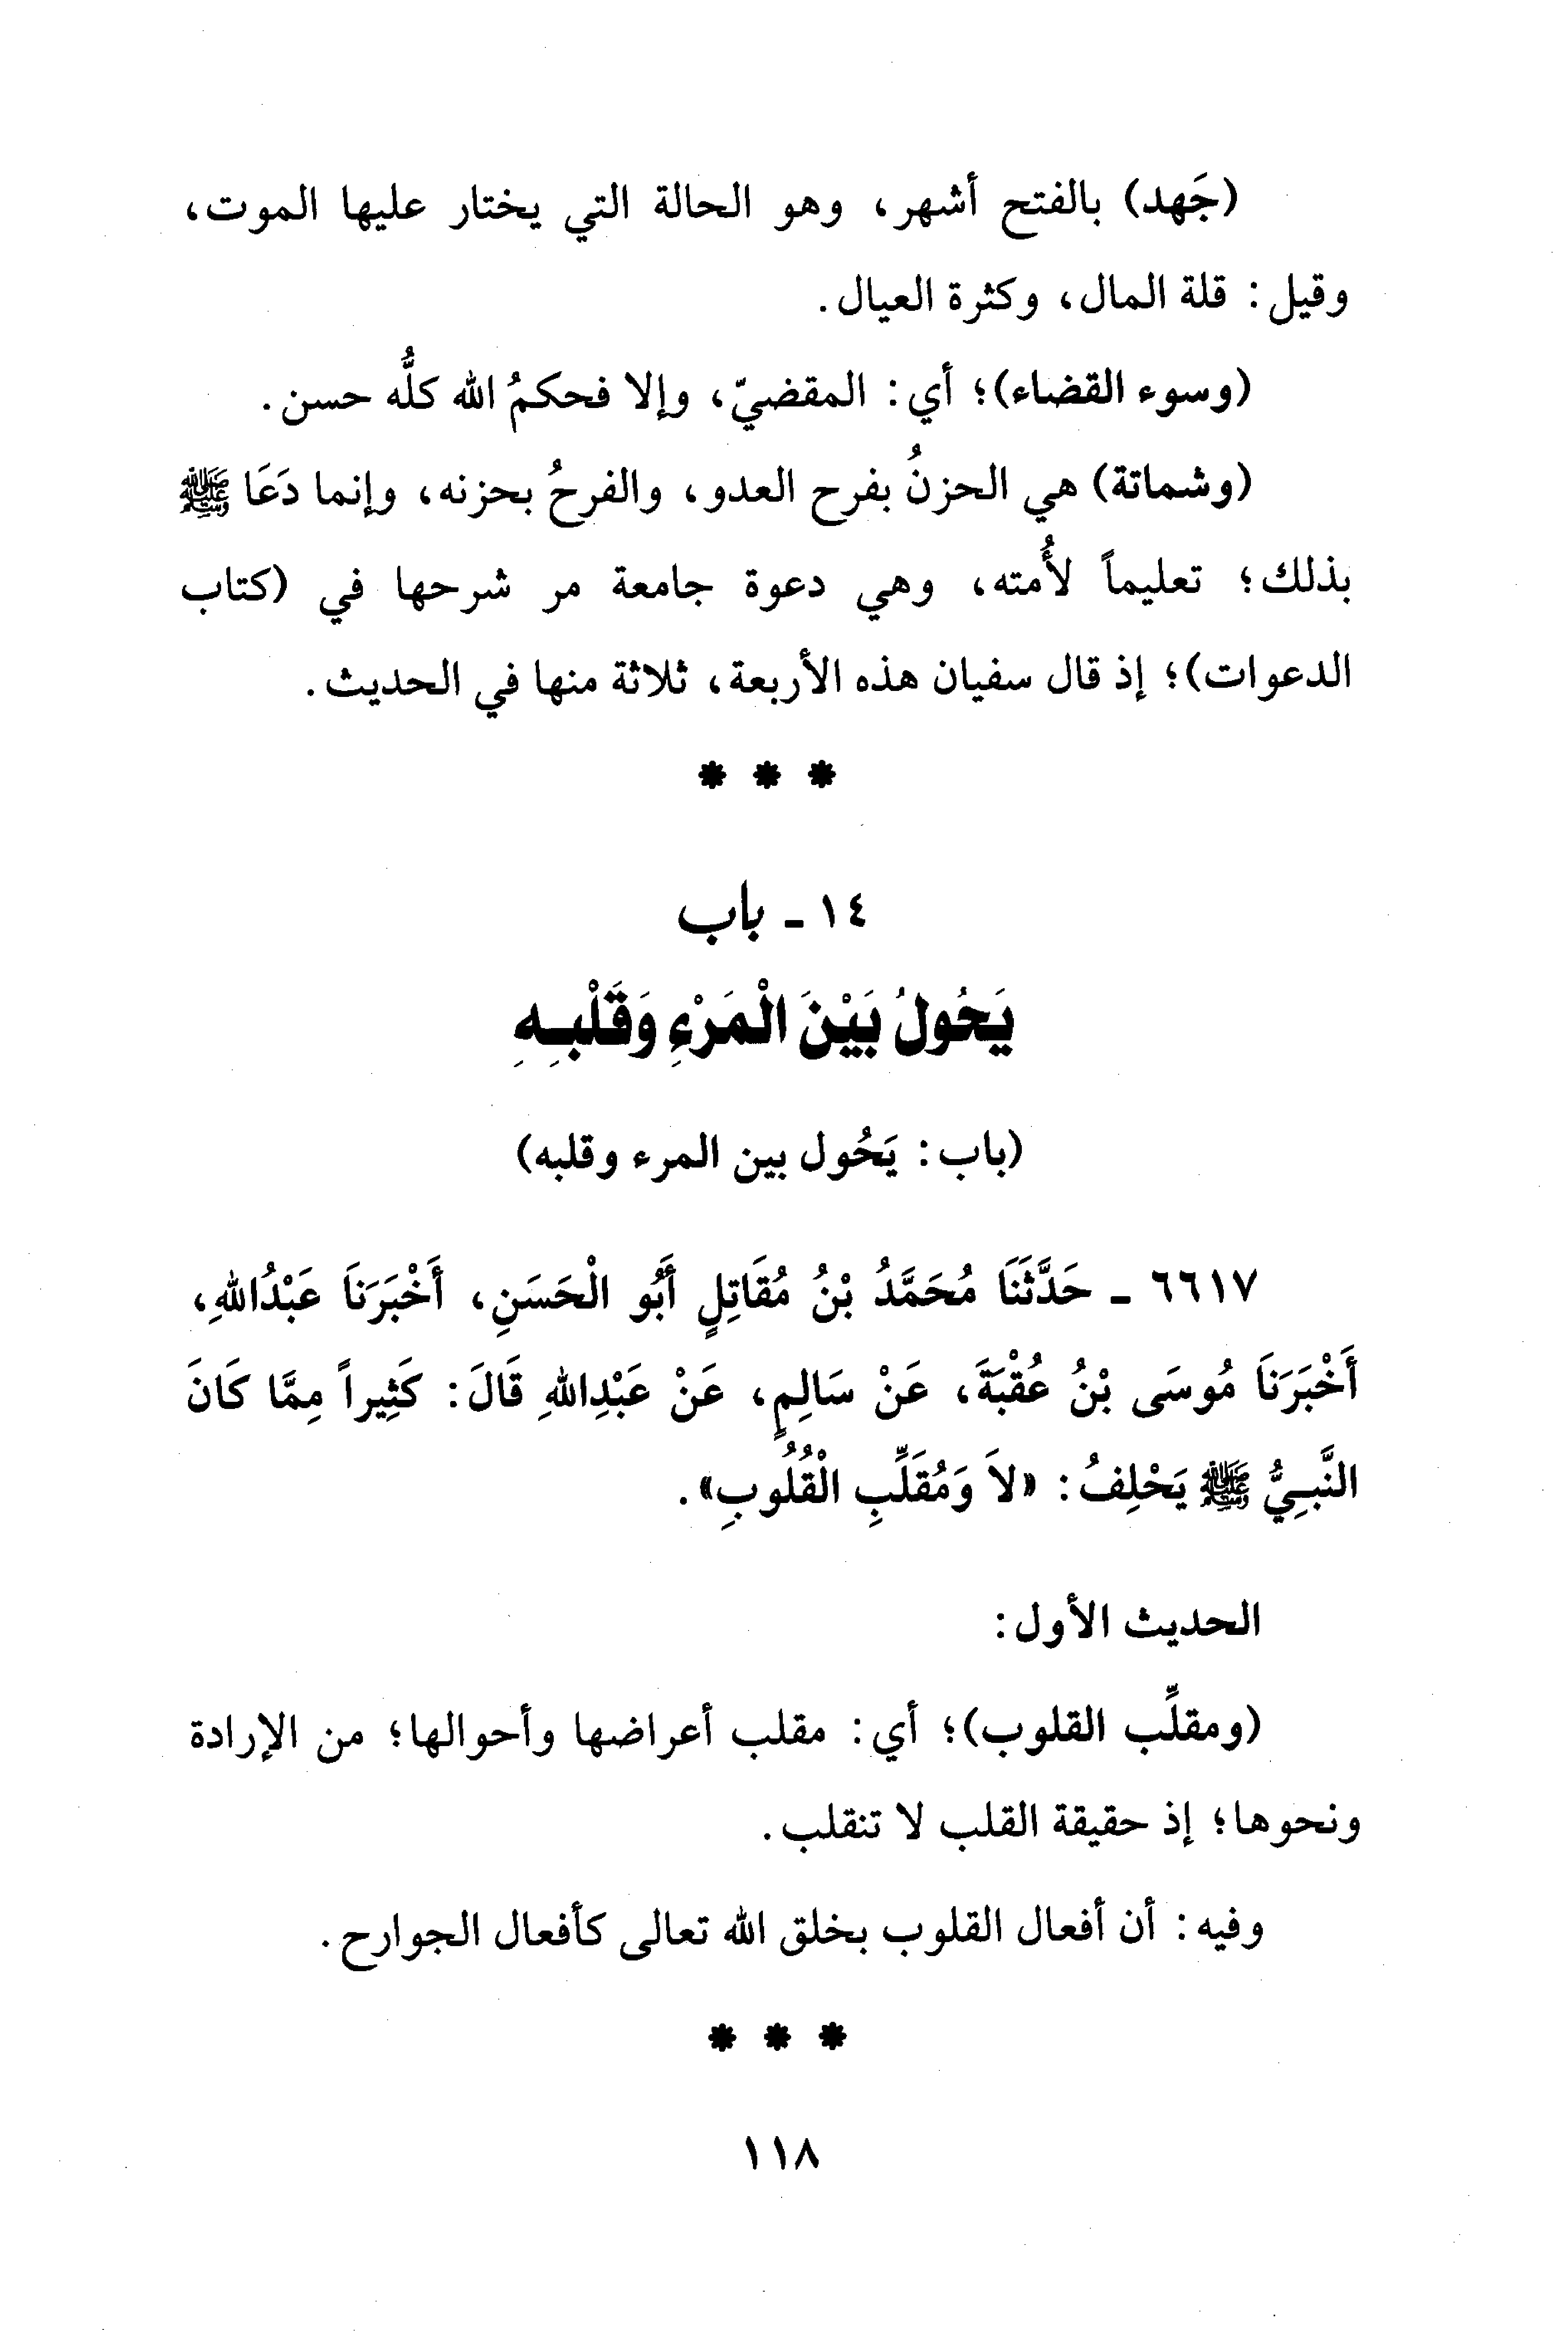 (جَهد) بالفتح أشهر، وهو الحالة التي يختار عليها الموت،
وقيل: قلة المال، وكثرة العيال.
(وسوء القضاء)؛ أي: المقضيّ، وإلا فحكمُ الله كلُّه حسن.
(وشماتة) هي الحزنُ بفرح العدو، والفرحُ بحزنه، وإنما دَعَا ﷺ
بذلك؛ تعليماً لأُمته، وهي دعوة جامعة مر شرحها في (كتاب
الدعوات)؛ إذ قال سفيان هذه الأربعة، ثلاثة منها في الحديث.
* * *
١٤ - باب
يَحُولُ بَيْنَ الْمَرْءِ وَقَلْبِهِ
(باب: يَحُول بين المرء وقلبه)
٦٦١٧ - حَدَّثَنَا مُحَمَّدُ بْنُ مُقَاتِلٍ أَبُو الْحَسَنِ، أَخْبَرَنَا عَبْدُاللهِ،
أَخْبَرَنَا مُوسَى بْنُ عُقْبَةَ، عَنْ سَالِمٍ، عَنْ عَبْدِاللهِ قَالَ: كَثِيراً مِمَّا كَانَ
النَّبِيُّ ﷺ يَحْلِفُ: «لاَ وَمُقَلِّبِ الْقُلُوبِ».
الحديث الأول:
(ومقلِّب القلوب)؛ أي: مقلب أعراضها وأحوالها؛ من الإرادة
ونحوها؛ إذ حقيقة القلب لا تنقلب.
وفيه: أن أفعال القلوب بخلق الله تعالى كأفعال الجوارح.
* * *
١١٨